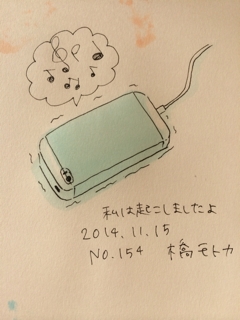 私は起こしましたよ
2014.11.15
No.154 橋モトカ